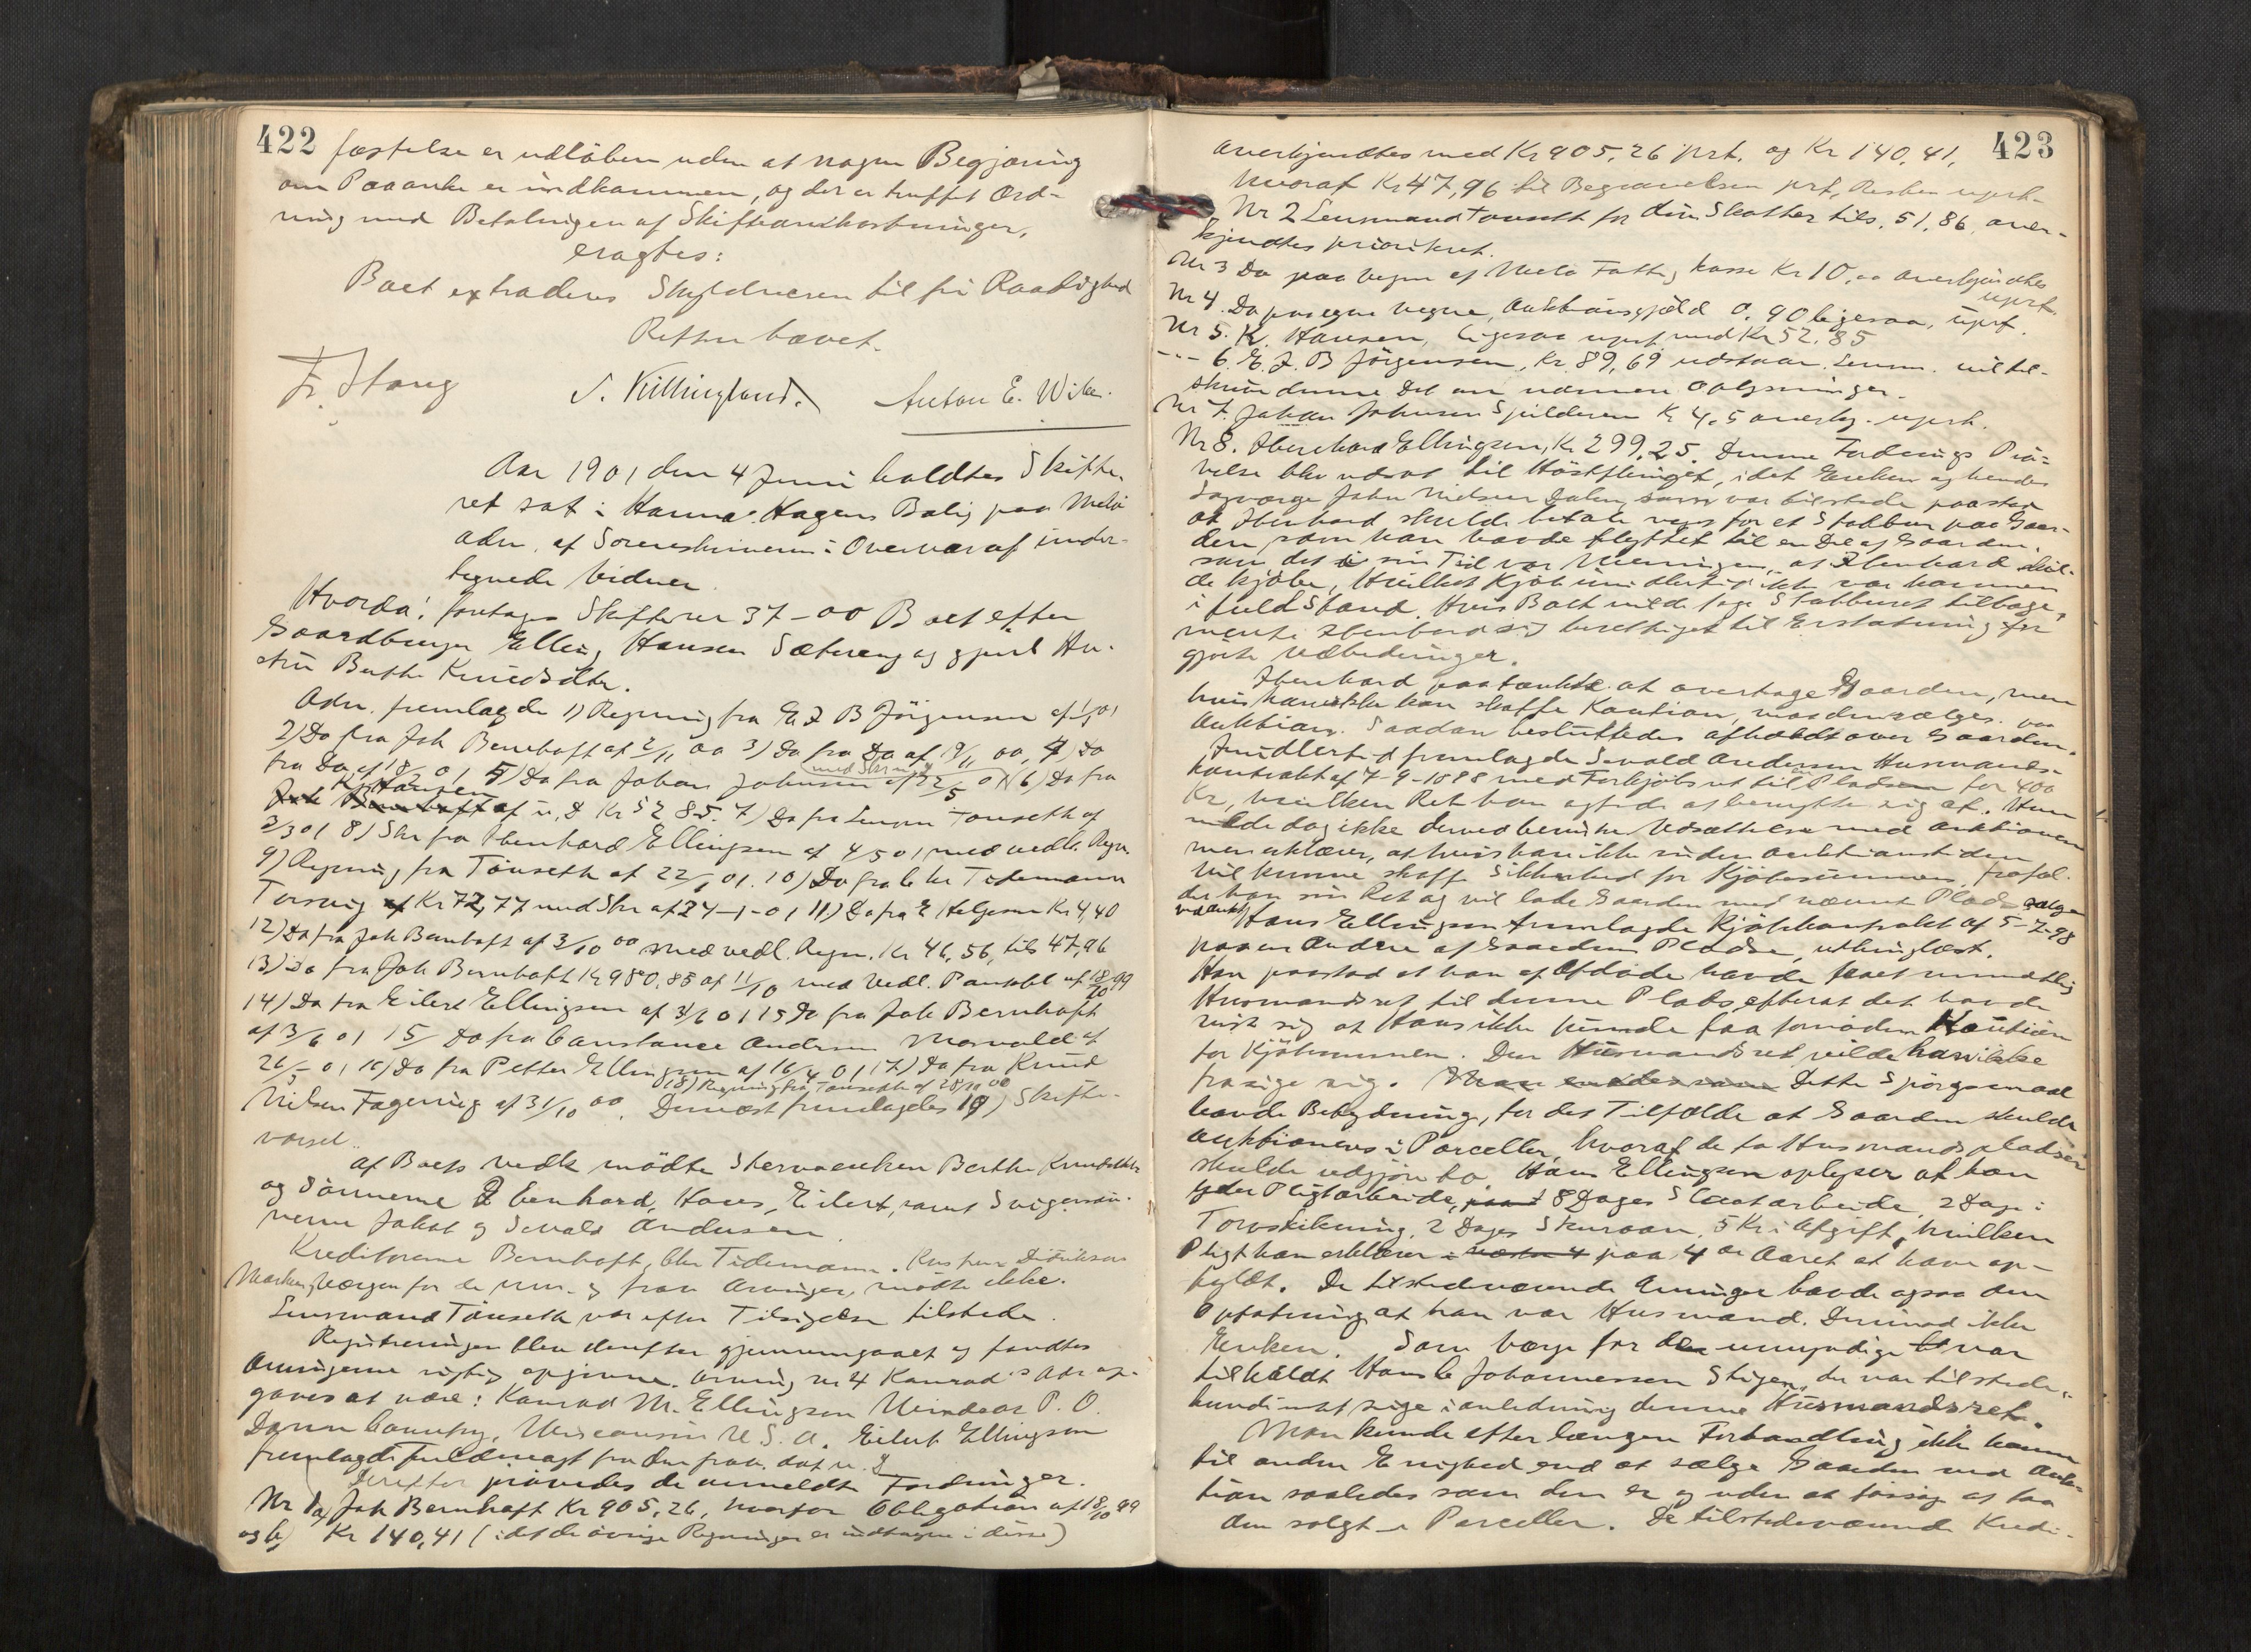 422
fæstelse er udløben uden at nogen Begjæring
om Paaanke er indkommen, og der er truffet Ord-
ning med Betalingen af Skifteomkostninger,
eragtes:
Boet extraderes Skyldneren til fri Raadighed
Retten hævet.
Fr. Stang S. Killingland. Anton E. Wik.
Aar 1901 den 4 Juni holdtes Skifte-
ret sat i Hanna Hagens Bolig paa Melö
adm. af Sorenskriveren i Overvær af under-
tegnede Vidner
Hvorda: foretages Skifte nr 37-00 Boet efter
Gaardbruger Elling Hansen Sætereng og gjenl. Hu-
stru Berthe Knudsdtr.
Adm. fremlagde 1) Regning fra E. J B Jörgensen af 1/5 01
2) Do fra Joh Bernhoft af 2/11 00 3) Do fra Do af 9/11 00, 4) Do
fra Do af 18/2 01 5) Do fra Johan Johnsen med Skr af 22/5 01 6) Do fra
K. Hansen af u. D Kr 52 85. 7) Do fra Lensm Tönseth af
2/3 01 8) Skr fra Ebenhard Ellingsen af 4/5 01 med vedl. Regn.
9) Regning fra Tönseth af 22/5 01. 10) Do fra Chr Tidemann
Torsvig af Kr 72,77 med Skr af 24-1-01 11) Do fra E Helgesen Kr 4,40
12) Do fra Joh Bernhoft af 3/10 00 med vedl. Regn. Kr 46,56, tils 47,96
13) Do fra Joh Bernhoft Kr 980.85 af 11/10 med Vedl. Panteobl af 18/10 99
14) Do fra Eilert Ellingsen af 3/6 01 15 Do fra Joh Bernhoft
af 3/6 01 15/ Do fra Constance Andersen Mosvold af
26/5 01 16) Do fra Petter Ellingsen af 16/4 01 17) Do fra Knud
18) Regning fra Tönseth af 28/10 00
Nilsen Fagervig af 31/10 00. Dernæst fremlagdes 19) Skifte-
varsel.
Af Boets vedk mödte Stervoenken Berthe Knudsdtr
og Sönnerne Ebenhard, Hans, Eilert, samt Svigersön-
nerne Jakob og Sevald Andersen.
Kreditorerne Bernhoft, Chr Tidemann. Didriksen
Marken, Værgen for de um. og frav. Arvinger, mödte ikke.
Lensmand Tönseth var efter Tilsigelse tilstede.
Registreringen blev derefter gjennemgaaet og fandtes
Arvingerne rigtig opgivne. Arving nr 4 Konrads Adr op-
gaves at være: Konrad M. Ellingsen P. O.
Dunn Country, Wisconsin U. S. A. Eilert Ellingsen
fremlagde fuldmagt fra den frav. dat u. D
Derefter prövedes de anmeldte Fordringer.
Nr 1 a) Joh Bernhoft Kr 905,26, hvorfor Obligation af 18/10 99
og b) Kr 140,41 (idet de övrige Regninger er indtagne i disse)
423
anerkjendtes med Kr 905,26 prt. og Kr 140,41,
hvoraf Kr 47,96 til Begravelsen prt, Resten uprt.
Nr 2 Lensmand Tönseth for din Skatter tils. 51,86, aner-
kjendtes prioriteret.
Nr 3 Do paa Vegne af Melö Fattigkasse Kr 10,00 anerkjendtes
uprt.
Nr 4. Do paa egne Vegne, Auktionsgjæld 0,90 ligesaa, uprt.
Nr 5. K. Hansen, ligesaa uprt med Kr 52.85
--- 6. E. J. B Jörgensen, Kr 89,69 udstaar. Lensm. vil til-
skrive denne Del om nærmere Oplysninger.
Nr 7. Johan Johnsen Spilderen Kr 4,5 anerkj. uprt.
Nr 8. Ebenhard Ellingsen, Kr 299,25. Denne Fordrings Prö-
velse blev udsat til Höstthinget, idet Enken og hendes
Lagværge John Nielsen Dalen, som var tilstede paastod
at Ebenhard skulde betale vess for et Stabbur paa Gaar-
den som han havde flyttet til en Del af Gaarden,
som det i sin Tid var Meningen, at Ebenhard skul-
de kjöbe, hvilket Kjöb imidlertid ikke var kommen
i fuld Stand. Hvis Boet vilde tage Stabburet tilbage,
mente Ebenhard sig berettiget til Erstatning for
gjorte Udbedringer.
Ebenhard paatænkte at overtage Gaarden, men
hvis han ikke kan skaffe Kaution, maa den sælges paa
Auktion. Saadan besluttedes afholdt over Gaarden.
Imidlertid fremlagde Sevald Andersen Husmands-
kontrakt af 7-9-1898 med Forkjöbsret til Pladsen for 400
Kr, hvilken Ret han agtede at benytte sig af. Han
vilde dog ikke derved bevirke Udsættelse med Auktionen
men erklærer, at hvis han ikke inden Auktionstiden
vil kunne skaffe Sikkerhed for Kjöbesummen, frafal-
der han sin Ret og vil lade Gaarden med nævnte Plads sælge
ved Aukt. Hans Ellingsen fremlagde Kjöbekontrakt af 5-7-98
paa en Anden af Gaardens Pladse, utinglæst.
Han paastod at han af Afdöde havde faaet mundtlig
Husmandsret til denne Plads, efterat det havde
vist sig at Hans ikke kunde faa fornöden Kaution
for Kjöbesummen. Den Husmandsret vilde han ikke
frasige sig. Dette Spörgsmaal
havde Betydning, for det Tilfælde at Gaarden skulde
auktioneres i Parceller, hvoraf de to Husmandspladser
skulde udgjöre to. Hans Ellingsen oplyser at han
yder Pligtarbeide, 8 Dages Slaatarbeide, 2 Dage i
Torvstikning, 2 Dages Skuraan, 5 Kr i Afgift, hvilken
Pligt han erklærer paa 4de Aaret at have op-
fyldt. De tilstedeværende Arvinger havde ogsaa den
Opfatning at han var Husmand. Derimod ikke
Enken. Som Værge for den umyndige var
tilkaldt Hans C Johannessen Stigen, der var tilstede.
kunde intet sige i anledning denne Husmandsret.
Man kunde efter længere Forhandling ikke komme
til anden Enighed end at sælge Gaarden ved Auk-
tion saaledes som den er og uden at forsöge at faa
den solgt i Parceller. De tilstedeværende Kredi-